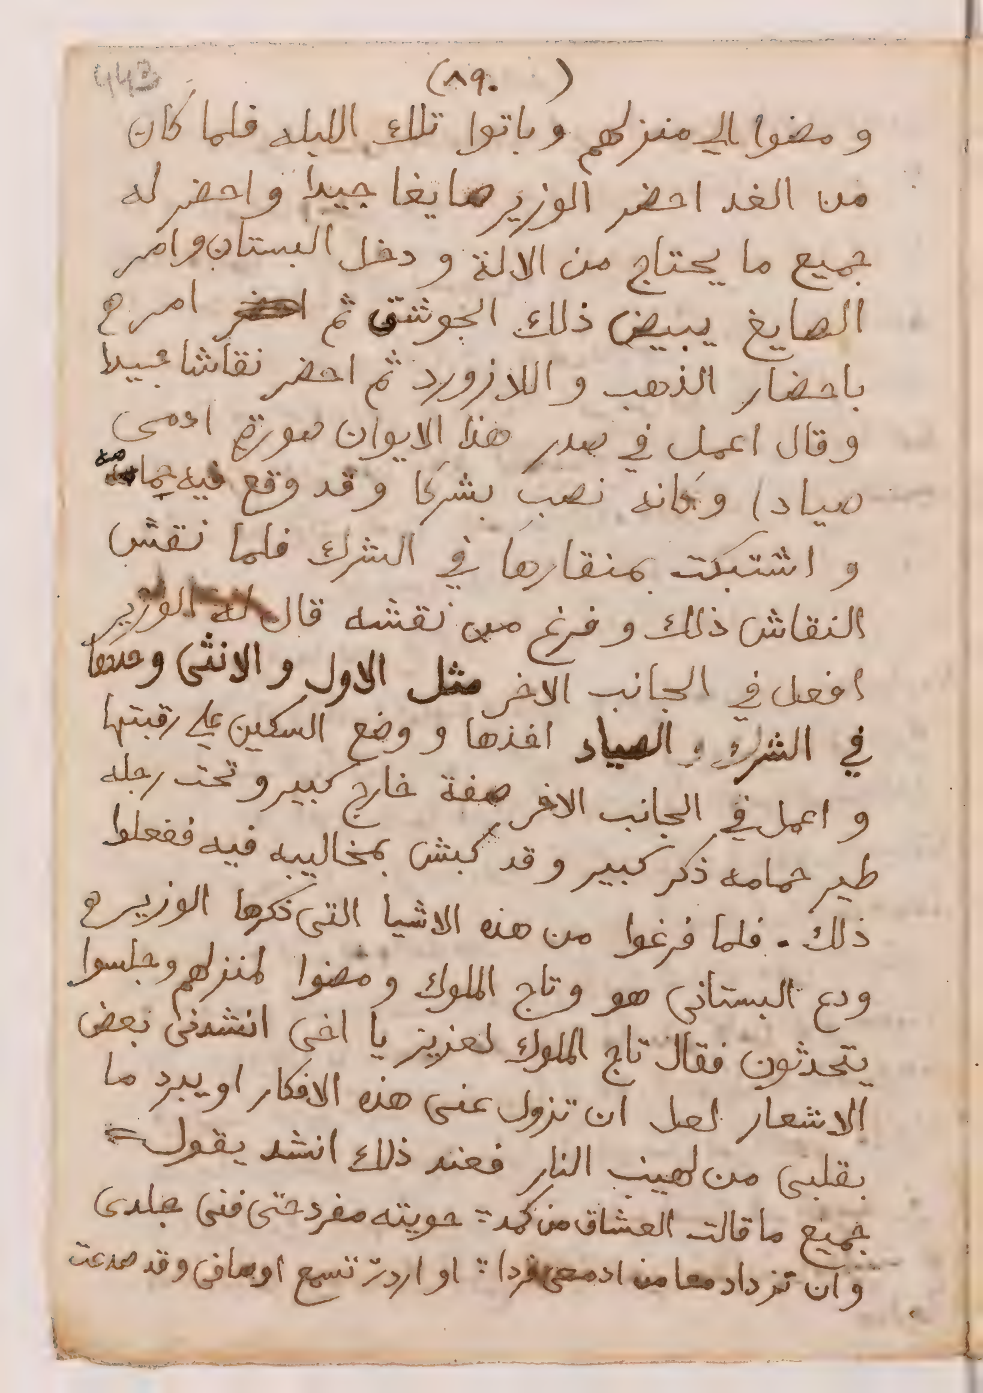 (٨٩٠)
443
ومضوا الي منزلهم وباتوا تلك الليله فلما كان
من الغد احضر الوزير صايغا جيدا واحضر له
جميع ما يحتاج من الالة ودخل البستان وامر
الصايغ يبيض ذلك الجوشق ثم امر
باحضار الذهب واللازورد ثم احضر نقاشا جيدا
وقال اعمل في صدر هذا الايوان صورة ادمى
صياد وكانه نصب شركا وقد وقع فيه حمامه
واشتبكت بمنقارها في الشرك فلما نقش
النقاش ذلك وفرغ من نقشه قال له الوزير
افعل في الجانب الاخر مثل الاول والانثى وحدها
في الشرك والصياد اخذها ووضع السكين علي رقبتها
واعمل في الجانب الاخر صفة خارج كبير وتحت رجله
طير حمامه ذكر كبير وقد كبش بمخاليبه فيه ففعلوا
ذلك . فلما فرغوا من هذه الاشيا التى ذكرها الوزير
ودع البستانى هو وتاج الملوك ومضوا لمنزلهم وجلسوا
يتحدثون فقال تاج الملوك لعزيز يا اخى انشدنى بعض
الاشعار لعل ان تزول عنى هذه الافكار او يبرد ما
بقلبى من لهيب النار فعند ذلك انشد يقول
جميع ما قالت العشاق من كمد حويته مفرد حتى فنى جلدى
وان ترد من ادمعى او اردت تسمع اوصافى وقد